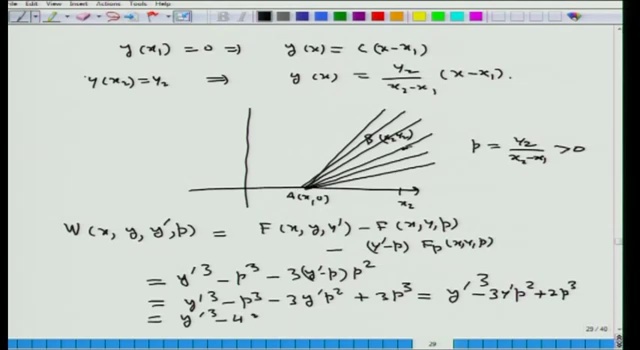 File Edit View Insert Actions Tools Help
y(x₁) = 0 ⇒ y(x) = C(x-x₁)
y(x₂)=y₂ ⇒ y(x) = y₂/(x₂-x₁) (x-x₁).
B(x₂,y₂)
p = y₂/(x₂-x₁) >0
A(x₁,0)
x₂
W(x, y, y', p) = F(x, y, y') - F(x, y, p)
- (y'-p) Fp(x, y, p)
= y'³ - p³ - 3(y'-p)p²
= y'³ - p³ - 3y'p² + 3p³ = y'³ - 3y'p² + 2p³
= y'³ - 4
29
29 / 40